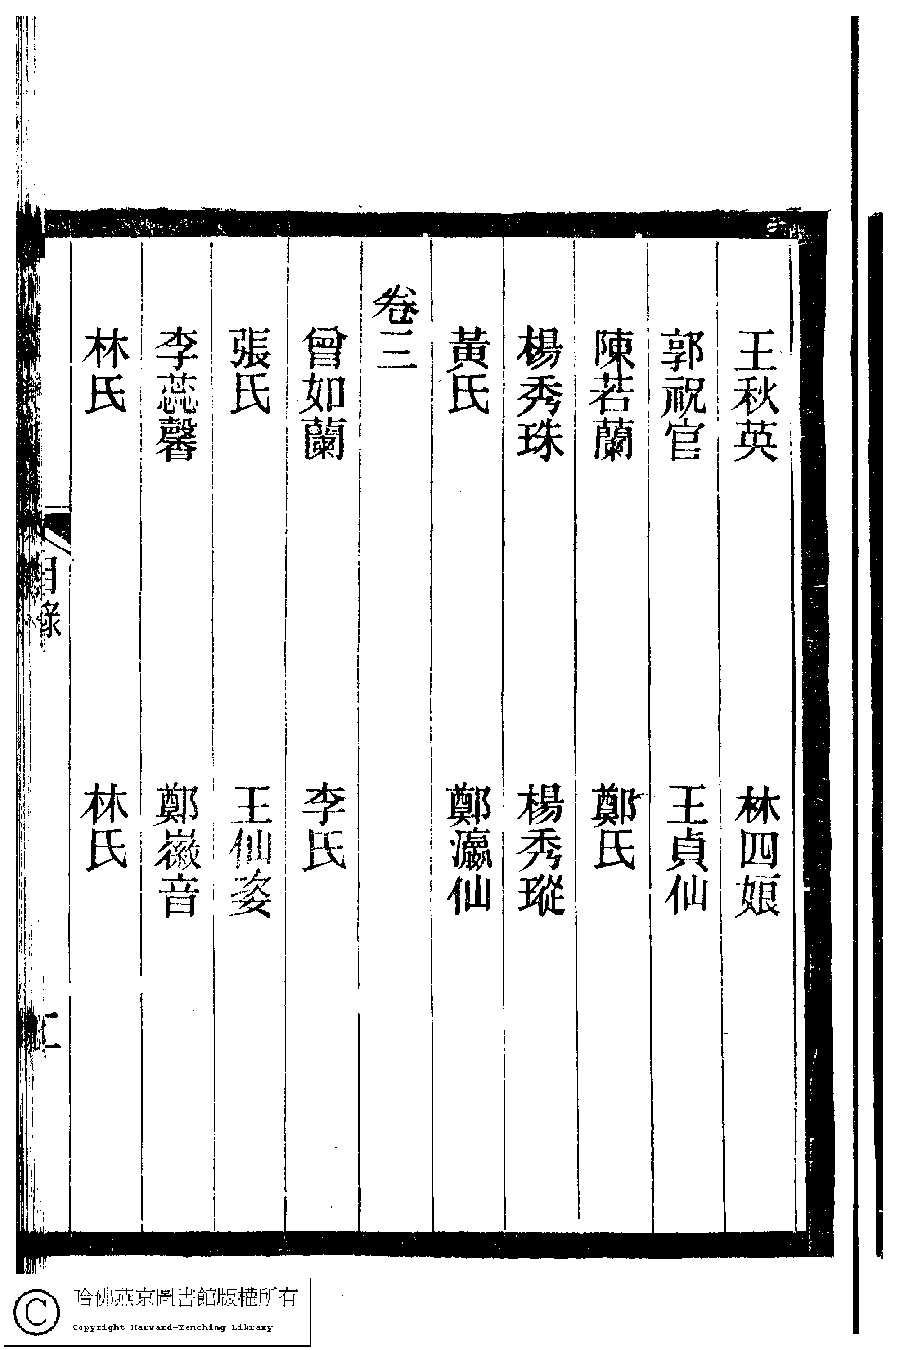 王秋英　林四娘
郭祝官　王貞仙
陳若蘭　鄭氏
楊秀珠　楊秀瑽
黃氏　鄭瀛仙
卷三
曾如蘭　李氏
張氏　王仙姿
李蕊馨　鄭徽音
林氏　林氏
目錄
哈佛燕京圖書館版權所有
Copyright Harvard-Yenching Library